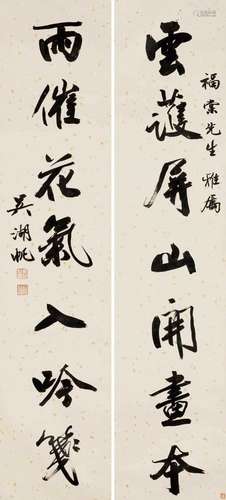 福棠先生雅屬
雲護屏山開畫本
雨催花氣入吟箋
吳湖帆